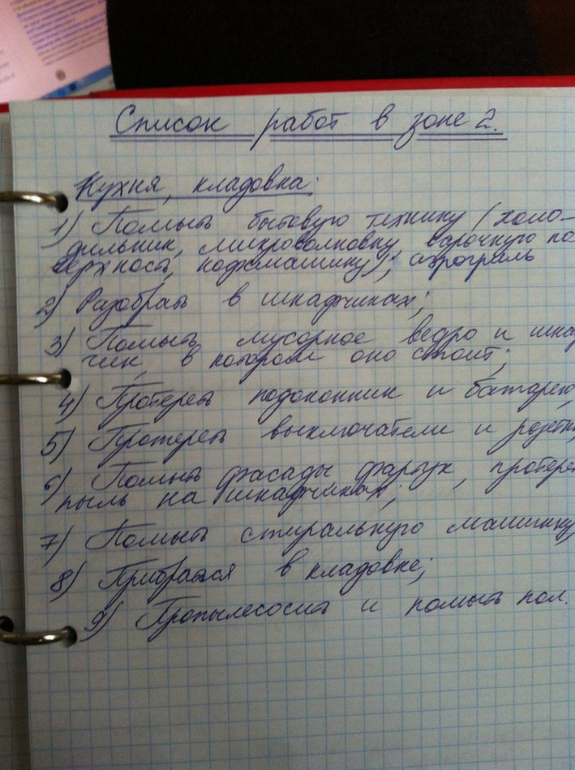 Список работ в зоне 2.
Кухня, кладовка:
1) Помыть бытовую технику (холо-
дильник, микроволновку, варочную по
верхность, кофемашину), аэрогриль
2) Разобрать в шкафчиках;
3) Помыть мусорное ведро и шка
чик, в котором оно стоит;
4) Протереть подоконник и батарею,
5) Протереть выключатели и розетк
6) Помыть фасады фартук, протере
пыль на шкафчиках,
7) Помыть стиральную машинку
8) Прибраться в кладовке;
9) Пропылесосить и помыть пол.